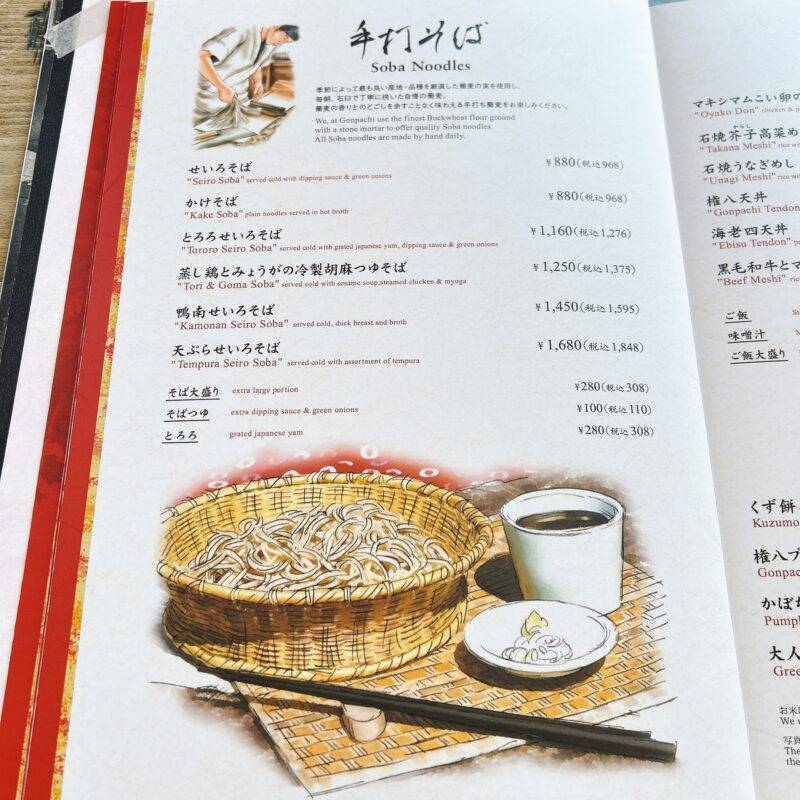 手打そば
Soba Noodles
季節によって最も良い産地・品種を厳選した蕎麦の実を使用し、
毎朝、石臼で丁寧に挽いた自慢の蕎麦。
蕎麦の香りとのどごしを余すことなく味わえる手打ち蕎麦をお楽しみください。
We, at Gonpachi use the finest Buckwheat flour ground
with a stone mortar to offer quality Soba noodles.
All Soba noodles are made by hand daily.
せいろそば ¥880(税込968)
"Seiro Soba" served cold with dipping sauce & green onions
かけそば ¥880(税込968)
"Kake Soba" plain noodles served in hot broth
とろろせいろそば ¥1,160(税込1,276)
"Tororo Seiro Soba" served cold with grated japanese yam, dipping sauce & green onions
蒸し鶏とみょうがの冷製胡麻つゆそば ¥1,250(税込1,375)
"Tori & Goma Soba" served cold with sesame soup,steamed chicken & myoga
鴨南せいろそば ¥1,450(税込1,595)
"Kamonan Seiro Soba" served cold, duck breast and broth
天ぷらせいろそば ¥1,680(税込1,848)
"Tempura Seiro Soba" served cold with assortment of tempura
そば大盛り extra large portion ¥280(税込308)
そばつゆ extra dipping sauce & green onions ¥100(税込110)
とろろ grated japanese yam ¥280(税込308)
マキシマムこい卵の
"Oyako Don" chicken &
からし
石焼芥子高菜め
"Takana Meshi" rice with
石焼うなぎめし
"Unagi Meshi" rice with
権八天丼
"Gonpachi Tendon
海老四天丼
"Ebisu Tendon"
黒毛和牛とマ
"Beef Meshi" rice
ご飯
味噌汁
ご飯大盛り
くず餅
Kuzumo
権八プ
Gonpach
かぼち
Pumpk
大人
Gree
お米に
We u
写真
The
the